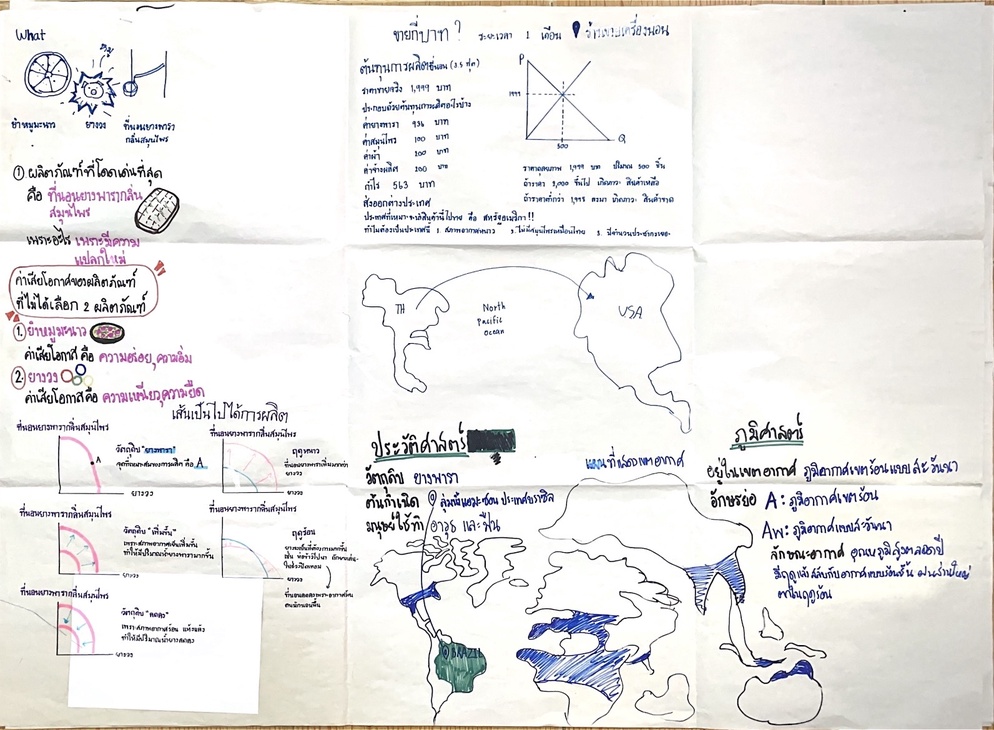 What
ยำหมูมะนาว
ยางวง
ที่นอนยางพารา
กลิ่นสมุนไพร
① ผลิตภัณฑ์ที่โดดเด่นที่สุด
คือ ที่นอนยางพารากลิ่น
สมุนไพร
เพราะอะไร เพราะมีความ
แปลกใหม่
ค่าเสียโอกาสของผลิตภัณฑ์
ที่ไม่ได้เลือก 2 ผลิตภัณฑ์
1. ยำหมูมะนาว
ค่าเสียโอกาส คือ ความอร่อย, ความอิ่ม
2. ยางวง
ค่าเสียโอกาส คือ ความเหนียว, ความยืด
เส้นเป็นไปได้การผลิต
ที่นอนยางพารากลิ่นสมุนไพร
A
ยางวง
วัตถุดิบ "ยางพารา"
จุดที่เหมาะสมของการผลิต คือ A
ที่นอนยางพารากลิ่นสมุนไพร
ยางวง
ฤดูหนาว
ที่นอนยางพารากลิ่นสมุนไพร
ยางวง
วัตถุดิบ "เพิ่มขึ้น"
ทำให้มีปริมาณน้ำยางพารามากขึ้น
ที่นอนยางพารากลิ่นสมุนไพร
ยางวง
ฤดูร้อน
ที่นอนยางพารากลิ่นสมุนไพร
ยางวง
วัตถุดิบ "ลดลง"
เพราะสภาพอากาศร้อน แห้งแล้ง
ทำให้มีปริมาณน้ำยางลดลง
ขายกี่บาท? ระยะเวลา 1 เดือน
ต้นทุนการผลิตที่นอน (3.5 ฟุต)
ราคาขายจริง 1,999 บาท
ประกอบด้วยต้นทุนการผลิตอะไรบ้าง
ค่ายางพารา 936 บาท
ค่าสมุนไพร 100 บาท
ค่าผ้า 200 บาท
ค่าจ้างผลิต 200 บาท
กำไร 563 บาท
ส่งออกต่างประเทศ
ประเทศที่เหมาะจะนำสินค้านี้ไปขาย คือ สหรัฐอเมริกา!!
ทำไมต้องเป็นประเทศนี้ 1. สภาพอากาศหนาว 2. ไม่มีสมุนไพรเหมือนไทย 3. มีจำนวนประชากรเยอะ
P
1999
500
Q
ราคาดุลยภาพ 1,999 บาท ปริมาณ 500 ชิ้น
ถ้าราคา 2,000 ขึ้นไป เกิดภาวะ สินค้าเหลือ
ถ้าราคาต่ำกว่า 1,998 ลงมา เกิดภาวะ สินค้าขาด
TH
North
Pacific
Ocean
USA
ประวัติศาสตร์
วัตถุดิบ ยางพารา
ต้นกำเนิด ลุ่มแม่น้ำอเมซอน ประเทศบราซิล
มนุษย์ใช้ทำ อาวุธ และ ฟืน
แผนที่แสดงเขตอากาศ
BRAZIL
ภูมิศาสตร์
อยู่ในเขตอากาศ ภูมิอากาศเขตร้อนแบบสะวันนา
อักษรย่อ A: ภูมิอากาศเขตร้อน
Aw: ภูมิอากาศแบบสะวันนา
ลักษณะอากาศ อุณหภูมิสูงตลอดปี
มีฤดูแล้งสลับกับอากาศแบบร้อนชื้น ฝนส่วนใหญ่
ตกในฤดูร้อน